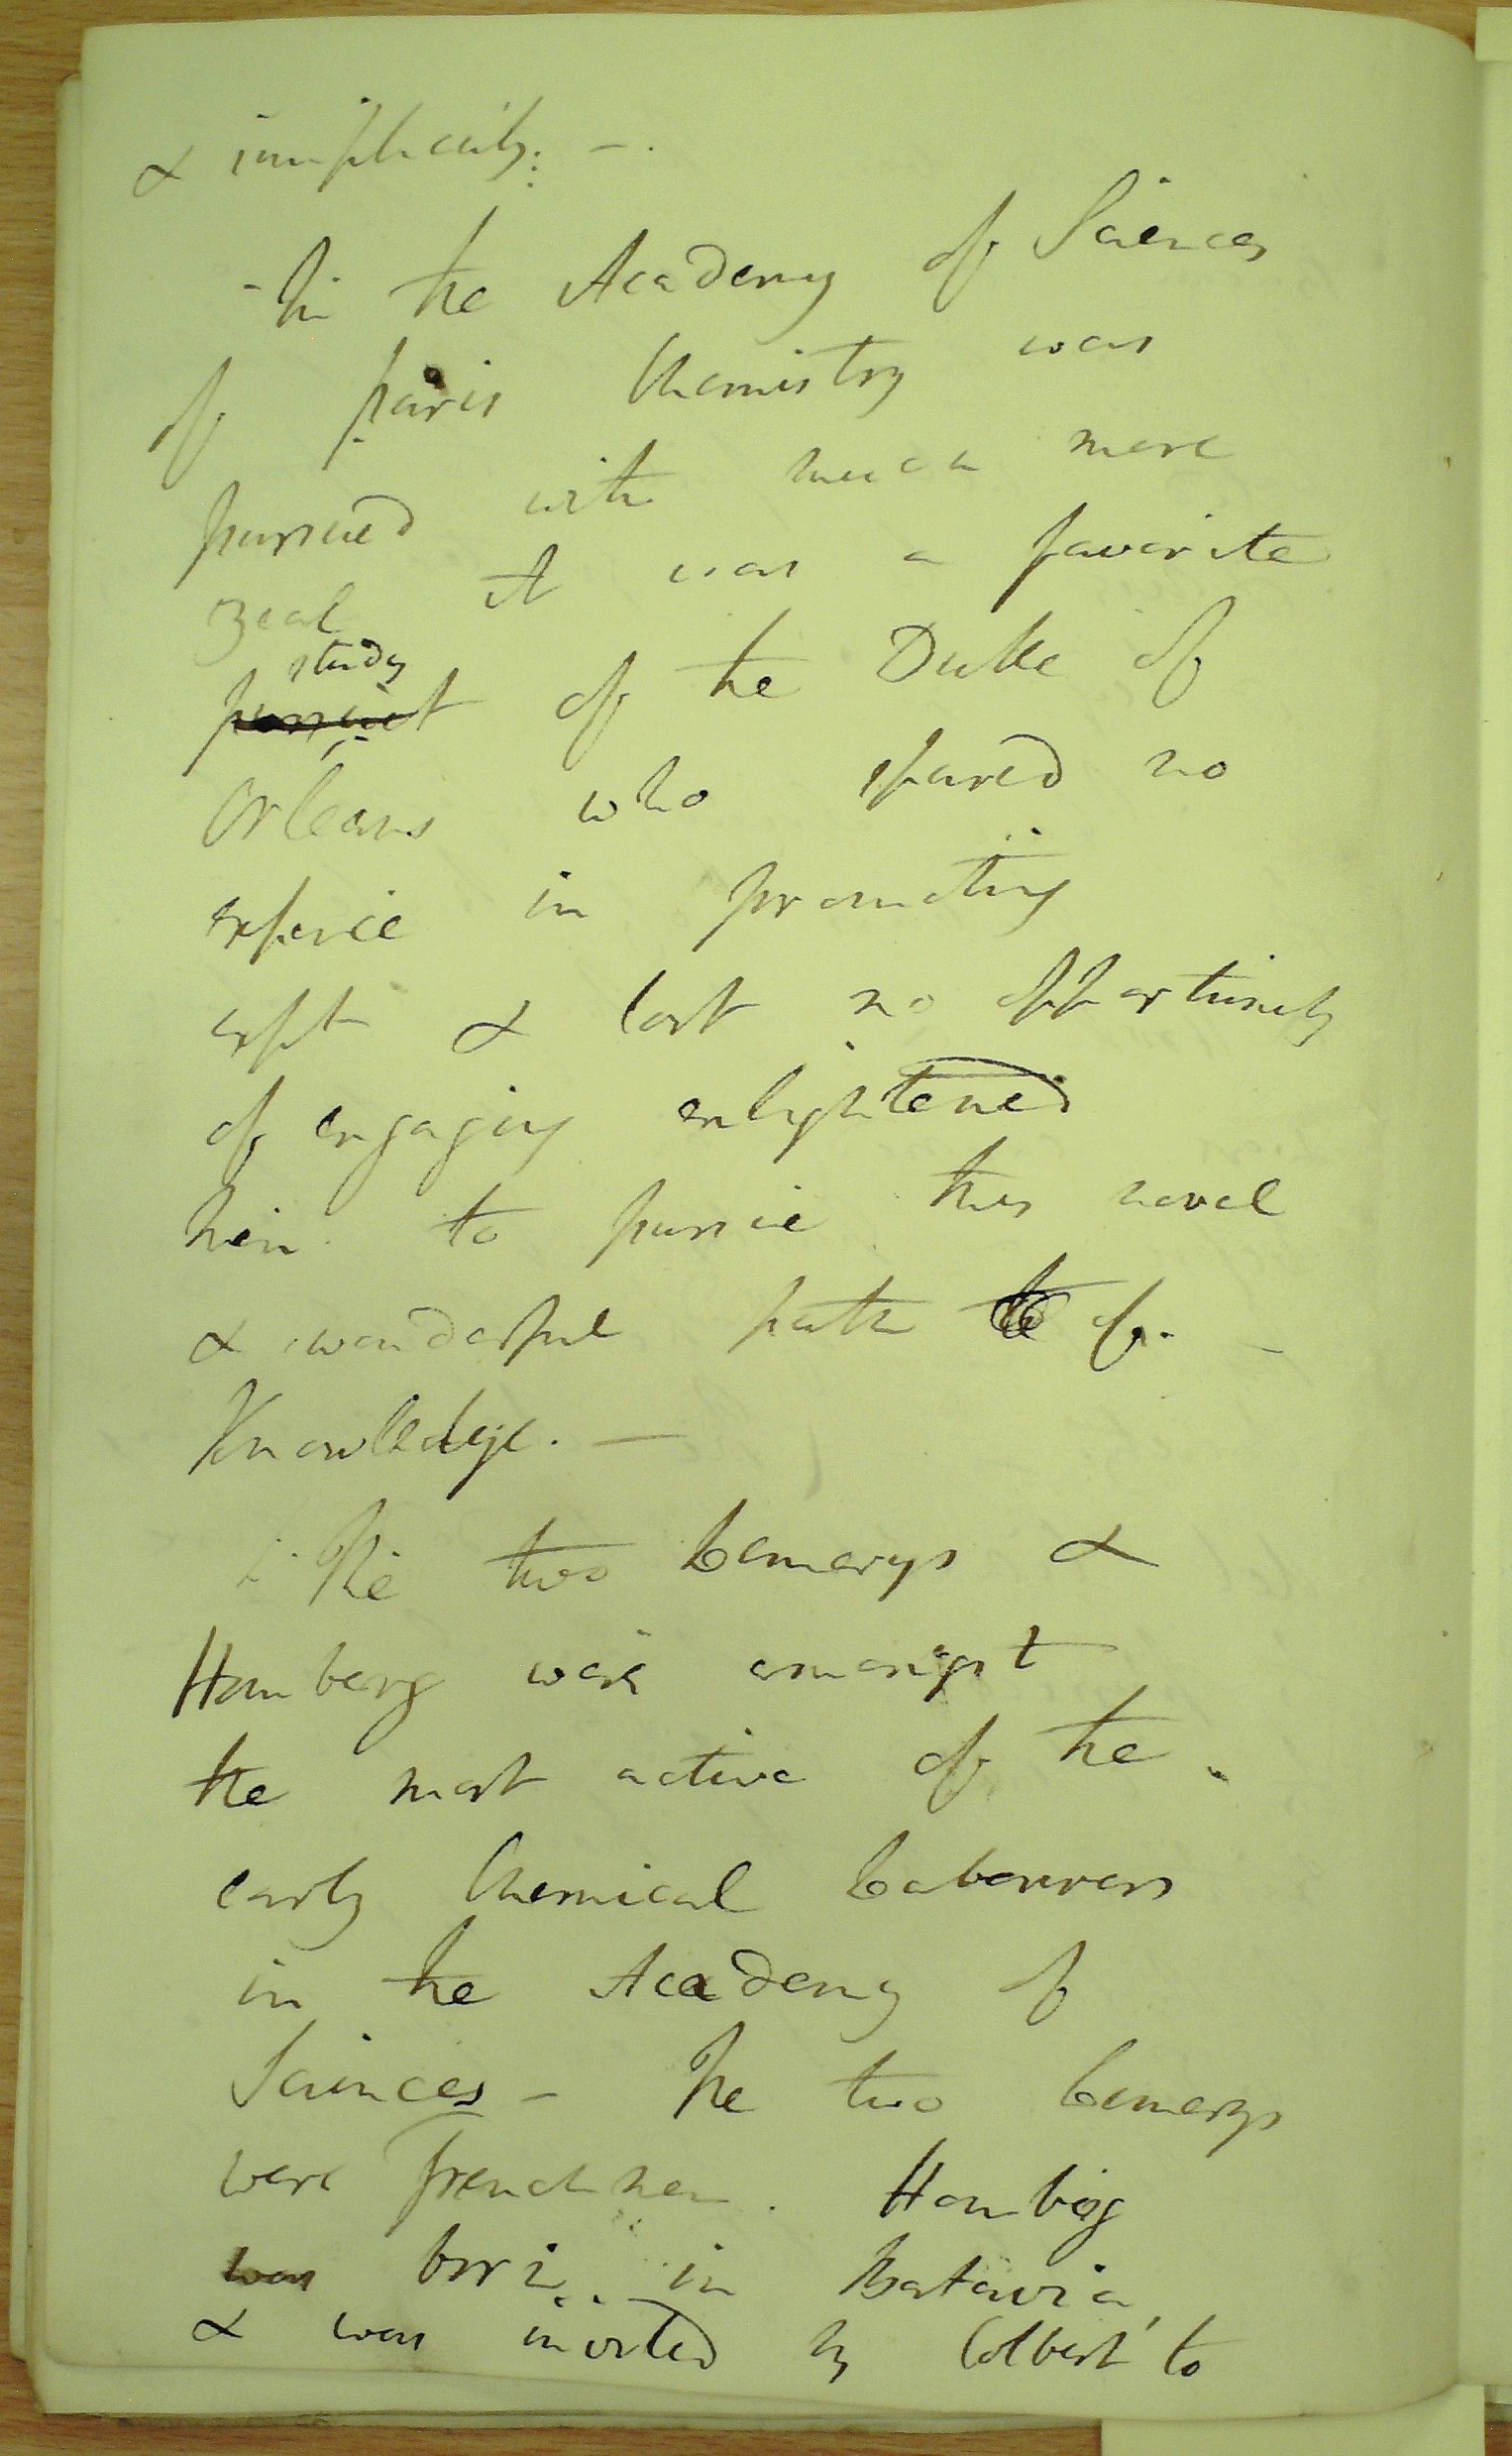 & simplicity: -.
- In the Academy of Sciences
of Paris Chemistry was
pursued with much more
zeal it was a favorite
study
pursuit of the Duke of
Orleans who spared no
expence in promoting
expts & lost no opportunity
of engaging enlightened
men to pursue this novel
& wonderful path to of. -
Knowledge. —
The two Lemerys &
Homberg were amongst
the most active of the
early Chemical Labourers
in the Academy of
Sciences - The two Lemerys
were Frenchmen. Homberg
was born in Batavia,
& was invited by Colbert to